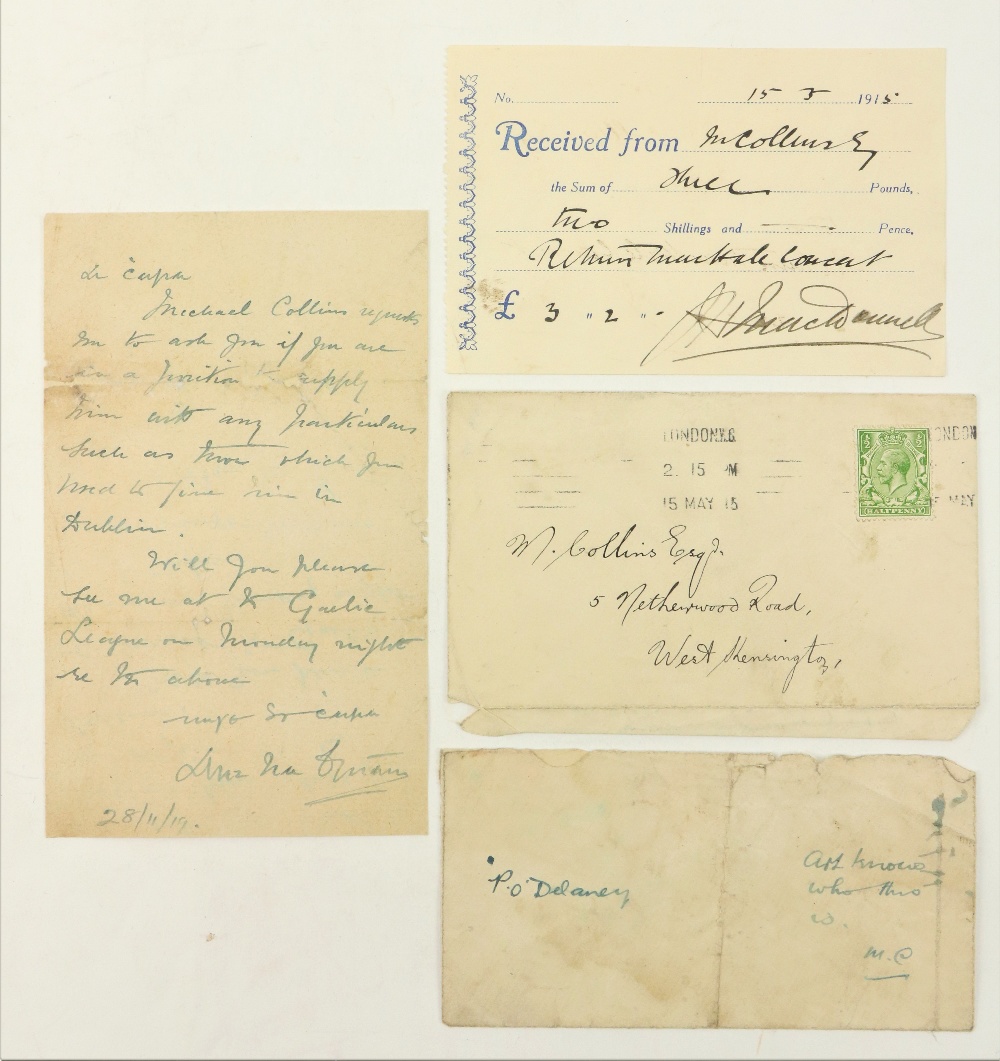 a Ċara
Michael Collins requests
me to ask you if you are
in a position to supply
him with any particulars
such as those which you
used to give him in
Dublin.
Will you please
see me at the Gaelic
League on Monday night
re the above
mise do ċara
28/11/19.
No. 15 5 1915
Received from M Collins Esq
the Sum of three Pounds,
two Shillings and — Pence,
Return Concert
£ 3 " 2 " -
MacDonnell
LONDON W.C.
2. 15 PM
15 MAY 15
LONDON
MAY
HALFPENNY
M. Collins Esqr.
5 Netherwood Road,
West Kensington,
P. O'Delaney
Art knows
who this
is.
M.C